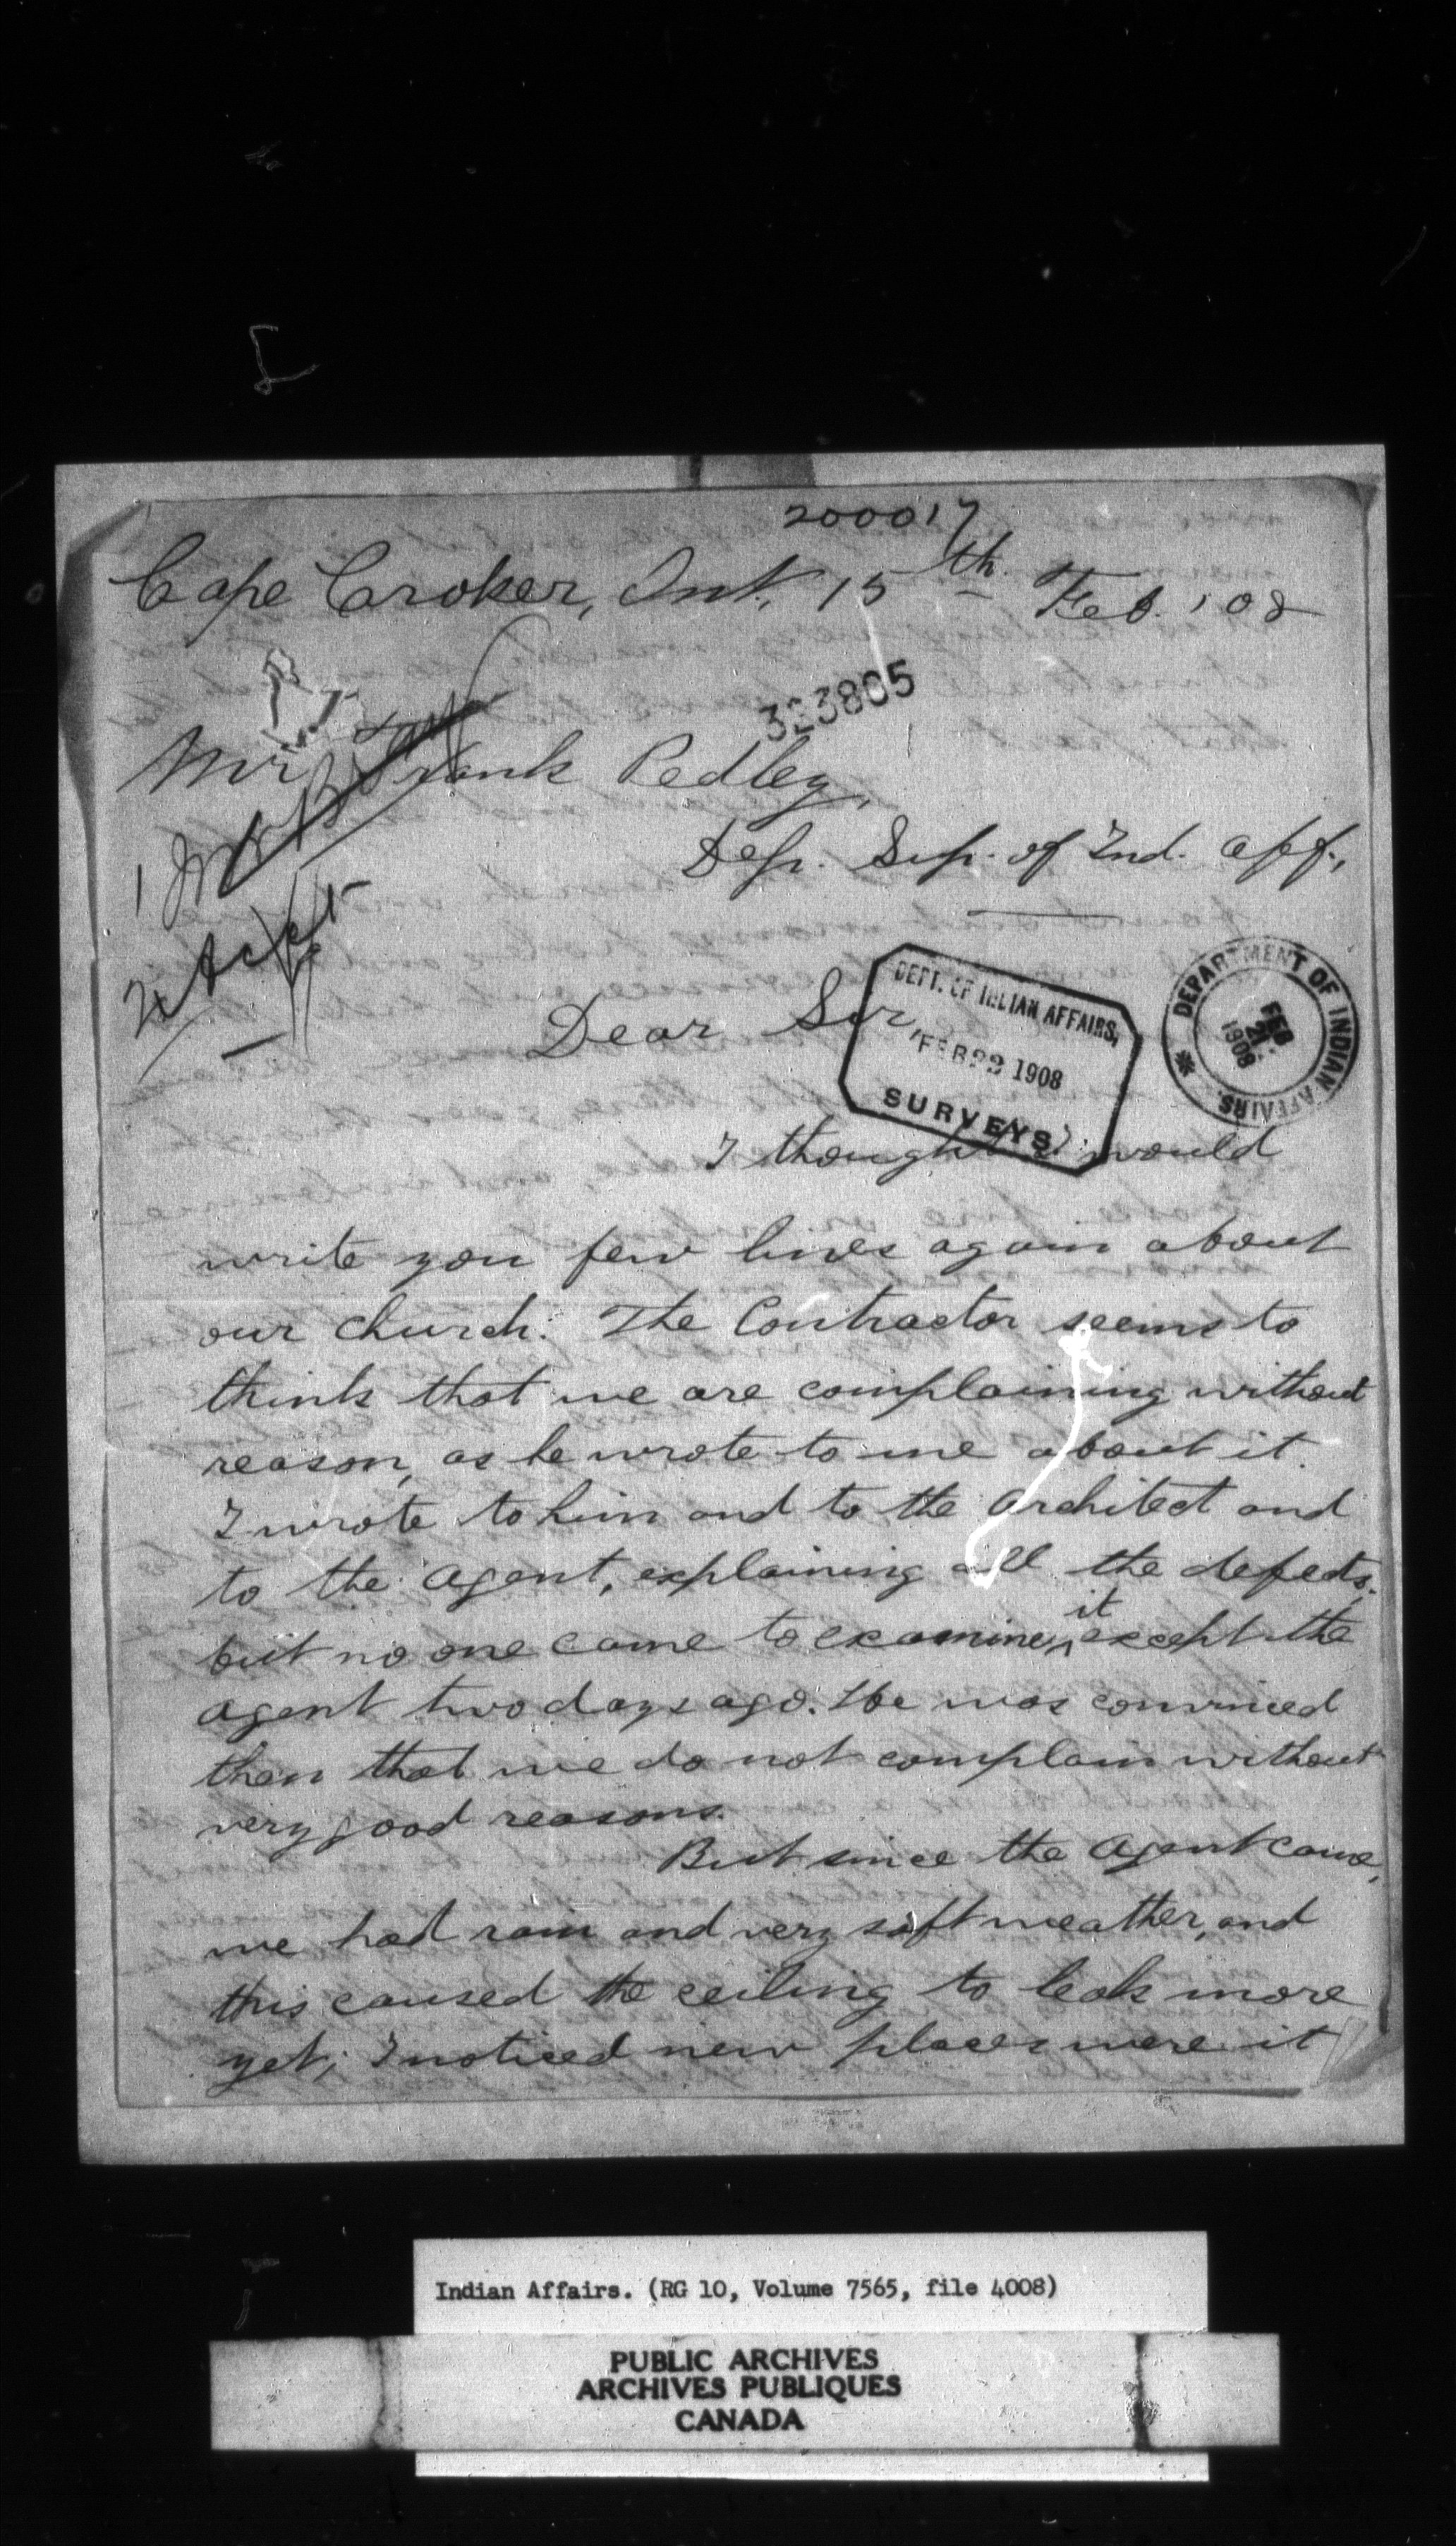 200017
Cape Croker, Ont. 15th Feb. '08
323805
Mr. Frank Pedley,
Dep. Sup. of Ind. Aff.,
Dear Sir,
DEPT. OF INDIAN AFFAIRS,
FEB 22 1908
SURVEYS
DEPARTMENT OF INDIAN AFFAIRS.
FEB
21
1908
I thought I would
write you few lines again about
our church. The Contractor seems to
think that we are complaining without
reason, as he wrote to me about it.
I wrote to him and to the Architect and
to the Agent, explaining all the defects,
but no one came to examine it except the
Agent two days ago. He was convinced
then that we do not complain without
very good reasons.
But since the Agent came,
we had rain and very soft weather, and
this caused the ceiling to leak more
yet; I noticed new places were it
Indian Affairs. (RG 10, Volume 7565, file 4008)
PUBLIC ARCHIVES
ARCHIVES PUBLIQUES
CANADA